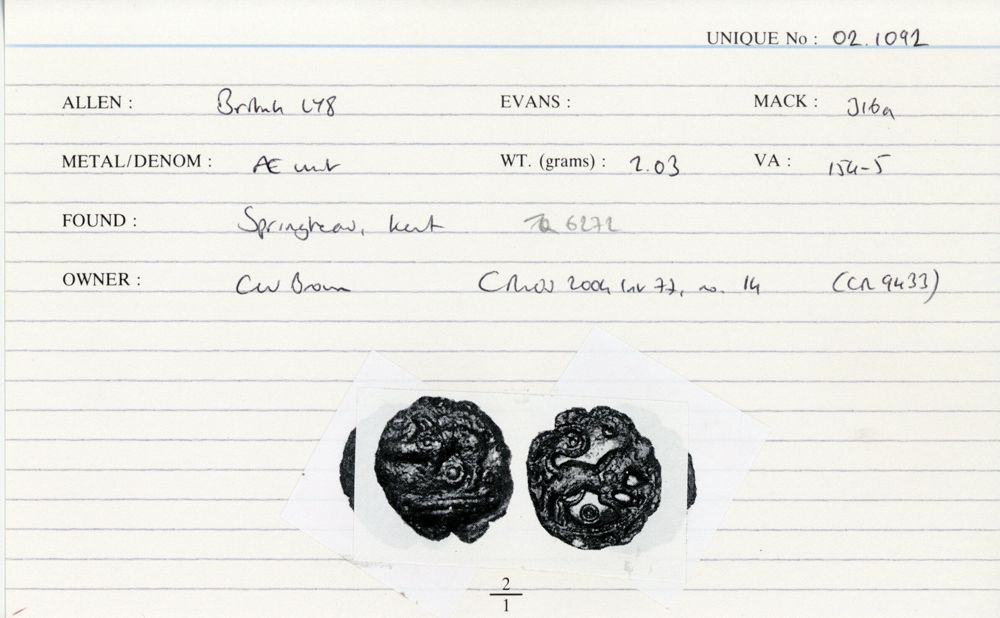 UNIQUE No : 02.1092
ALLEN : British LY8 EVANS : MACK : 316a
METAL/DENOM : Æ unit WT. (grams) : 2.03 VA : 154-5
FOUND : Springhead, Kent TQ 6272
OWNER : CW Brown 2004 77, no. 14 (CR 9433)
2
1